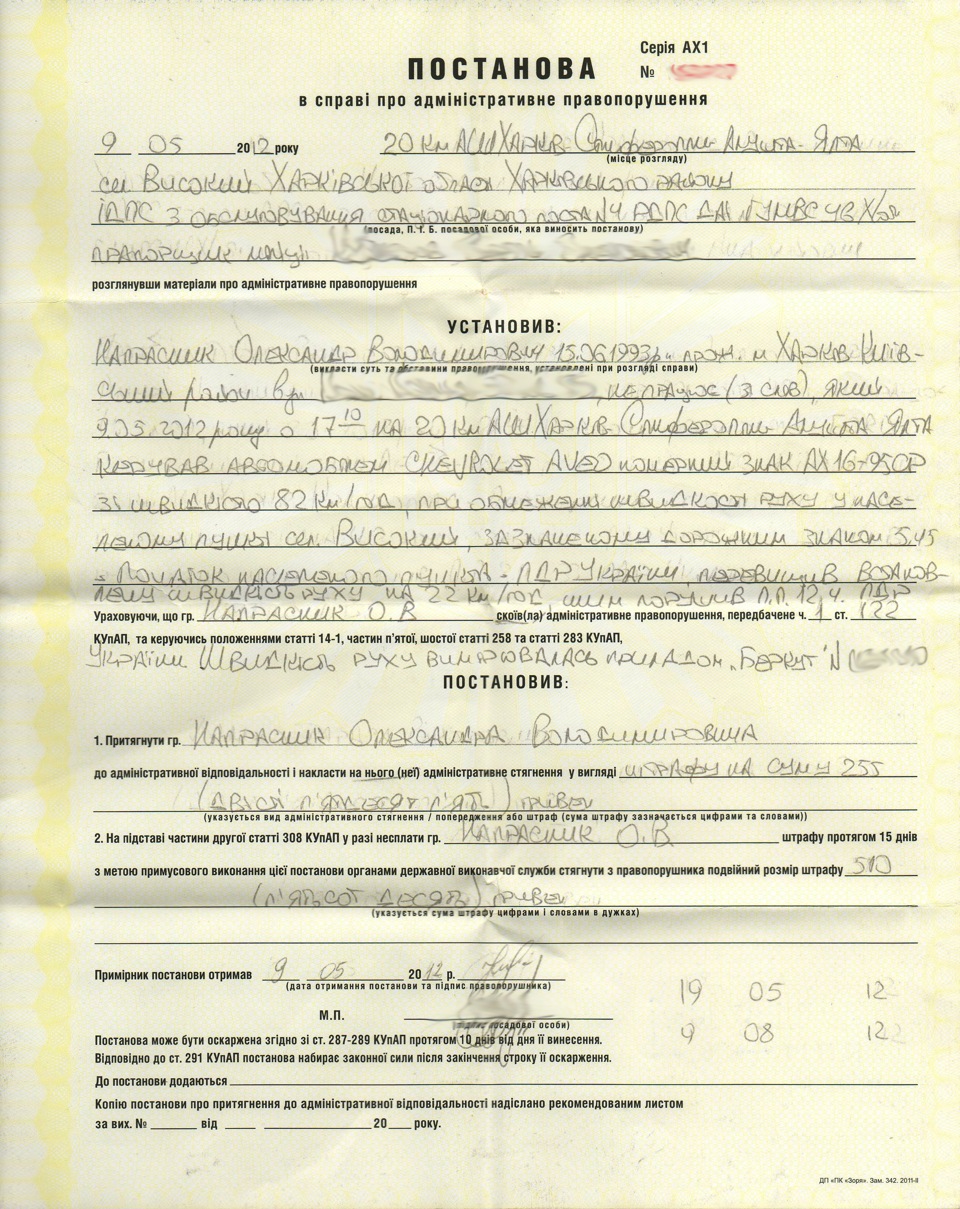 Серія АХ1
ПОСТАНОВА №
в справі про адміністративне правопорушення
9 05 2012 року 20 км АШ Харків Сімферополь Алушта - Ялта
(місце розгляду)
сел Високий Харківської області Харківського району
ІДПС з обслуговування стаціонарного поста №
(посада, П. І. Б. посадової особи, яка виносить постанову)
прапорщик міліції
розглянувши матеріали про адміністративне правопорушення
УСТАНОВИВ:
Напрасник Олександр Володимирович 15.06.1993р. прож. м Харків Київ-
(викласти суть та обставини правопорушення, установлені при розгляді справи)
ський район вул. , не працює (зі слов), який
9.05.2012 року о 17 10 на 20 км АШ Харків Сімферополь Алушта Ялта
керував автомобілем CHEVROLET AVEO номерний знак АХ 16-95СР
зі швидкістю 82 км/год, при обмеженні швидкості руху у насе-
леному пункті сел. Високий, зазначеному дорожним знаком 5.45
- Початок населеного пункта - ПДР України перевищив встанов-
лену швидкість руху на 22 км/год, чим порушив п.п. 12.4. ПДР
Ураховуючи, що гр. Напрасник О.В скоїв(ла) адміністративне правопорушення, передбачене ч. 1 ст. 122
КУпАП, та керуючись положеннями статті 14-1, частин п'ятої, шостої статті 258 та статті 283 КУпАП,
України Швидкість руху вимірювалась приладом „Беркут" №
ПОСТАНОВИВ:
1. Притягнути гр. Напрасник Олександра Володимировича
до адміністративної відповідальності і накласти на нього (неї) адміністративне стягнення у вигляді штрафу на суму 255
(двісті п'ятдесят п'ять) гривен
(указується вид адміністративного стягнення / попередження або штраф (сума штрафу зазначається цифрами та словами))
2. На підставі частини другої статті 308 КУпАП у разі несплати гр. Напрасник О.В штрафу протягом 15 днів
з метою примусового виконання цієї постанови органами державної виконавчої служби стягнути з правопорушника подвійний розмір штрафу 510
(п'ятсот десять) гривен
(указується сума штрафу цифрами і словами в дужках)
Примірник постанови отримав 9 05 2012 р.
(дата отримання постанови та підпис правопорушника)
19 05 12
М.П.
(підпис посадової особи)
9 08 12
Постанова може бути оскаржена згідно зі ст. 287-289 КУпАП протягом 10 днів від дня її винесення.
Відповідно до ст. 291 КУпАП постанова набирає законної сили після закінчення строку її оскарження.
До постанови додаються
Копію постанови про притягнення до адміністративної відповідальності надіслано рекомендованим листом
за вих. № від 20 року.
ДП «ПК «Зоря». Зам. 342. 2011-ІІ